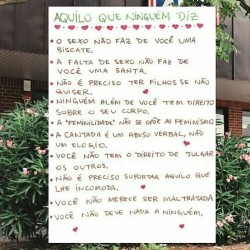 AQUILO QUE NINGUÉM DIZ
• O SEXO NÃO FAZ DE VOCÊ UMA
BISCATE.
• A FALTA DE SEXO NÃO FAZ
DE VOCÊ UMA SANTA.
• NÃO É PRECISO TER FILHOS SE NÃO
QUISER.
• NINGUÉM ALÉM DE VOCÊ TEM DIREITO
SOBRE O SEU CORPO.
• A "FEMINILIDADE" NÃO SE OPÕE AO FEMINISMO
• A CANTADA É UM ABUSO VERBAL, NÃO
UM ELOGIO.
• VOCÊ NÃO TEM O DIREITO DE JULGAR
OS OUTROS.
• NÃO É PRECISO SUPORTAR AQUILO QUE
LHE INCOMODA.
• VOCÊ NÃO MERECE SER MALTRATADA
• VOCÊ NÃO DEVE NADA A NINGUÉM.